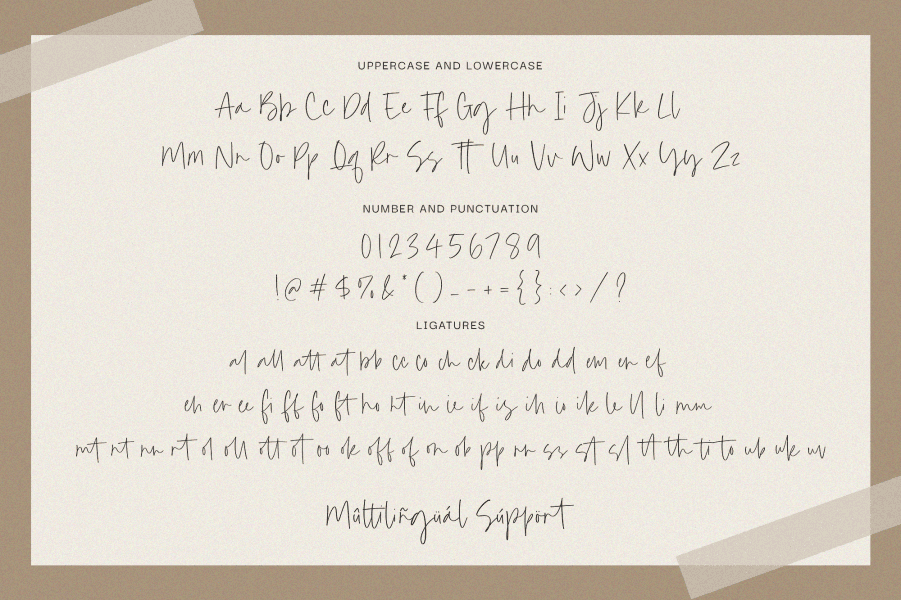 UPPERCASE AND LOWERCASE
Aa Bb Cc Dd Ee Ff Gg Hh Ii Jj Kk Ll
Mm Nn Oo Pp Qq Rr Ss Tt Uu Vv Ww Xx Yy Zz
NUMBER AND PUNCTUATION
0123456789
!@#$%&*()_-+={}:<>/?
LIGATURES
al all att at bb cc co ch ck di do dd em en ef
eh er ee fi ff fo ft ho ht in ie if is ih io ik le ll li mm
mt nt nn rt ol oll ott ot oo ok off of on ob pp rr ss st sl tt th ti to ub uk ur
Mûltiliñgüál Súppört